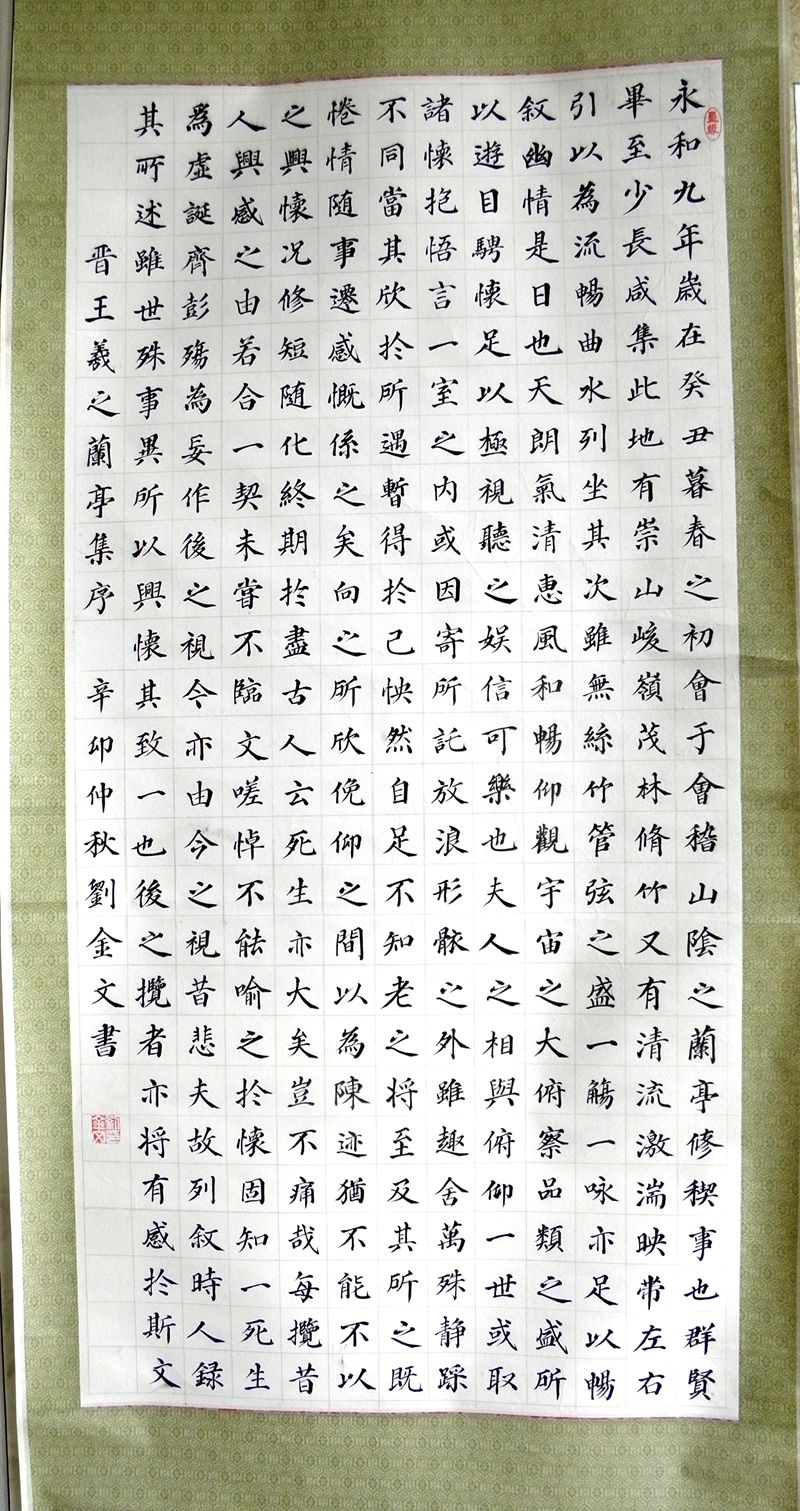 永和九年歲在癸丑暮春之初會于會稽山陰之蘭亭修稧事也群賢
畢至少長咸集此地有崇山峻嶺茂林脩竹又有清流激湍映帶左右
引以為流暢曲水列坐其次雖無絲竹管弦之盛一觴一咏亦足以暢
叙幽情是日也天朗氣清惠風和暢仰觀宇宙之大俯察品類之盛所
以遊目騁懷足以極視聽之娛信可樂也夫人之相與俯仰一世或取
諸懷抱悟言一室之内或因寄所託放浪形骸之外雖趣舍萬殊静踩
不同當其欣於所遇暫得於己怏然自足不知老之将至及其所之既
惓情随事遷感慨係之矣向之所欣俛仰之間以為陳迹猶不能不以
之興懷况修短随化終期於盡古人云死生亦大矣豈不痛哉每攬昔
人興感之由若合一契未甞不臨文嗟悼不能喻之於懷固知一死生
爲虛誕齊彭殤為妄作後之視今亦由今之視昔悲夫故列叙時人録
其所述雖世殊事異所以興懷其致一也後之攬者亦将有感於斯文
晋王羲之蘭亭集序 辛卯仲秋劉金文書